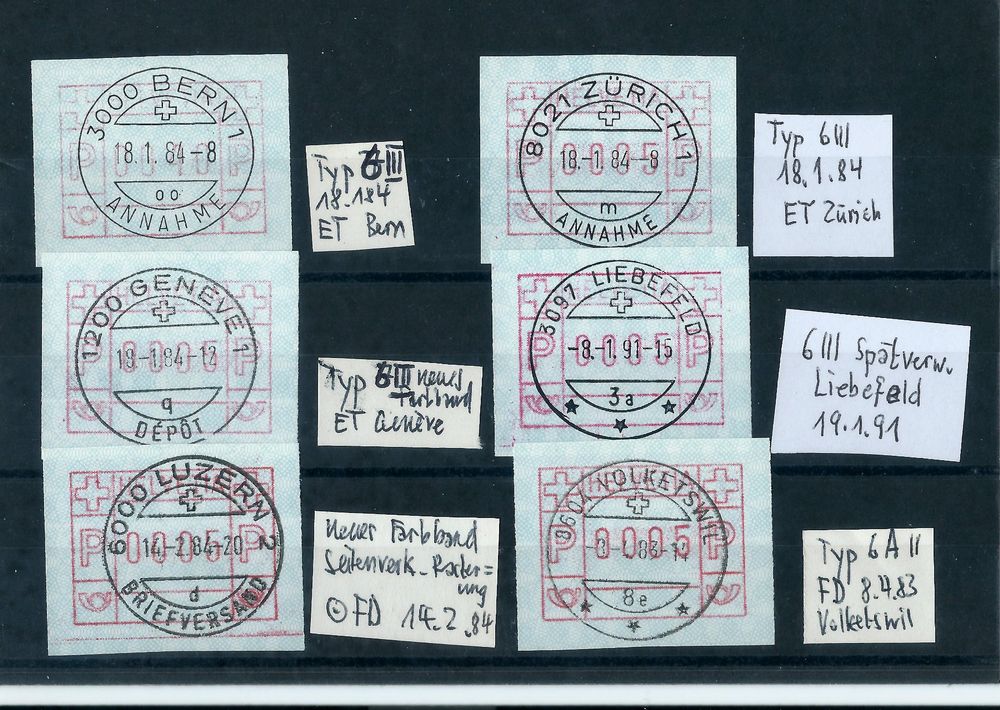 3000 BERN 1
0140
18.1.84-8
oo
ANNAHME
Typ 6 III
18.1.84
ET Bern
8021 ZÜRICH 1
0005
18.-1.84-8
m
ANNAHME
Typ 6III
18.1.84
ET Zürich
1200 GENÈVE 1
0005
18.-1.84-12
q
DÉPÔT
Typ 6III neues
Farbband
ET Genève
3097 LIEBEFELD
0005
-8.-1.91-15
3a
6 III Spätverw.
Liebefeld
19.1.91
6000 LUZERN 2
0005
14.-2.84-20
d
BRIEFVERSAND
neuer Farbband
Seitenverk.
FD 14.2.84
8604 VOLKETSWIL
0005
8e
Typ 6A II
FD 8.4.83
Volketswil